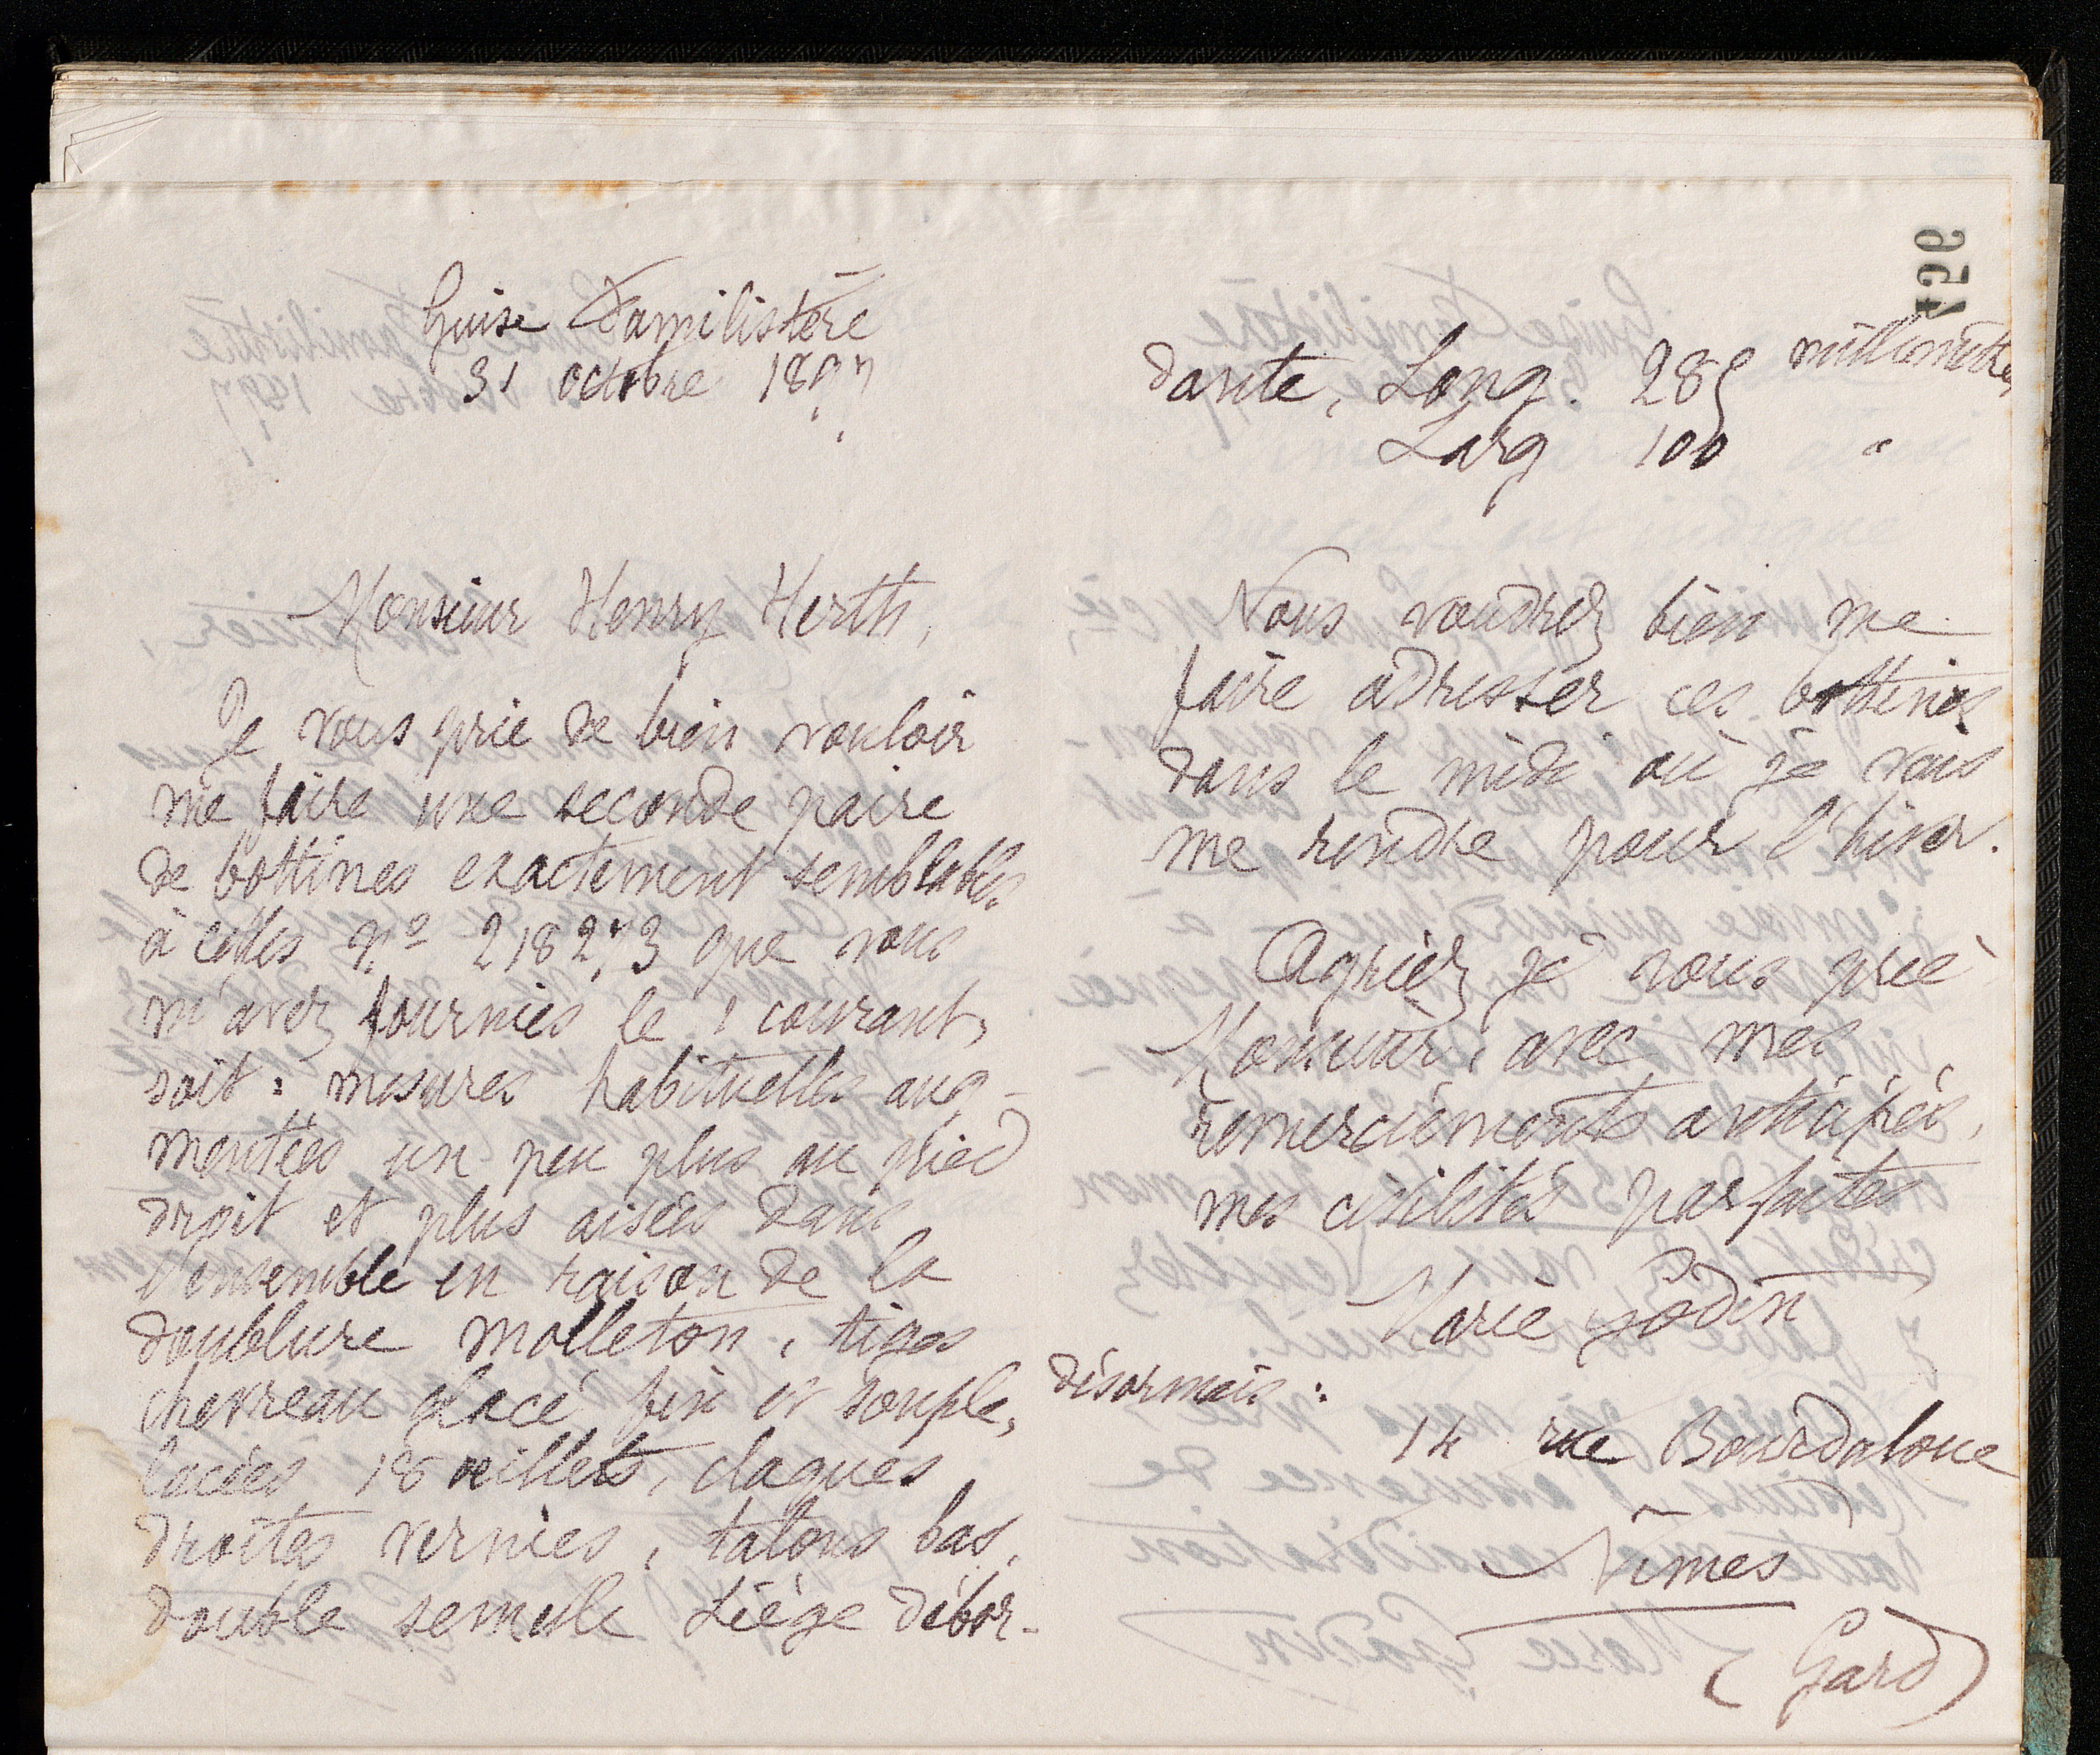 Guise Familistère
31 octobre 1897
Monsieur Henry Herth,
Je vous prie de bien vouloir
me faire une seconde paire
de bottines exactement semblables
à celles nº 218273 que vous
m'avez fournies le 1 courant,
soit : mesures habituelles aug-
mentées un peu plus au pied
droit et plus aisées dans
l'ensemble en raison de la
doublure molleton, tiges
chevreau glacé fin et souple,
lacées 18 œillets, claques
droites vernies, talons bas,
double semelle liège débor-
426
dante, Long. 285 millimètres
Larg 100 "
Vous voudrez bien me
faire adresser ces bottines
dans le midi où je vais
me rendre pour l'hiver.
Agréez je vous prie
Monsieur, avec mes
remerciements anticipés,
mes civilités parfaites
Marie Godin
désormais :
14 rue Bourdaloue
Nîmes
(Gard)